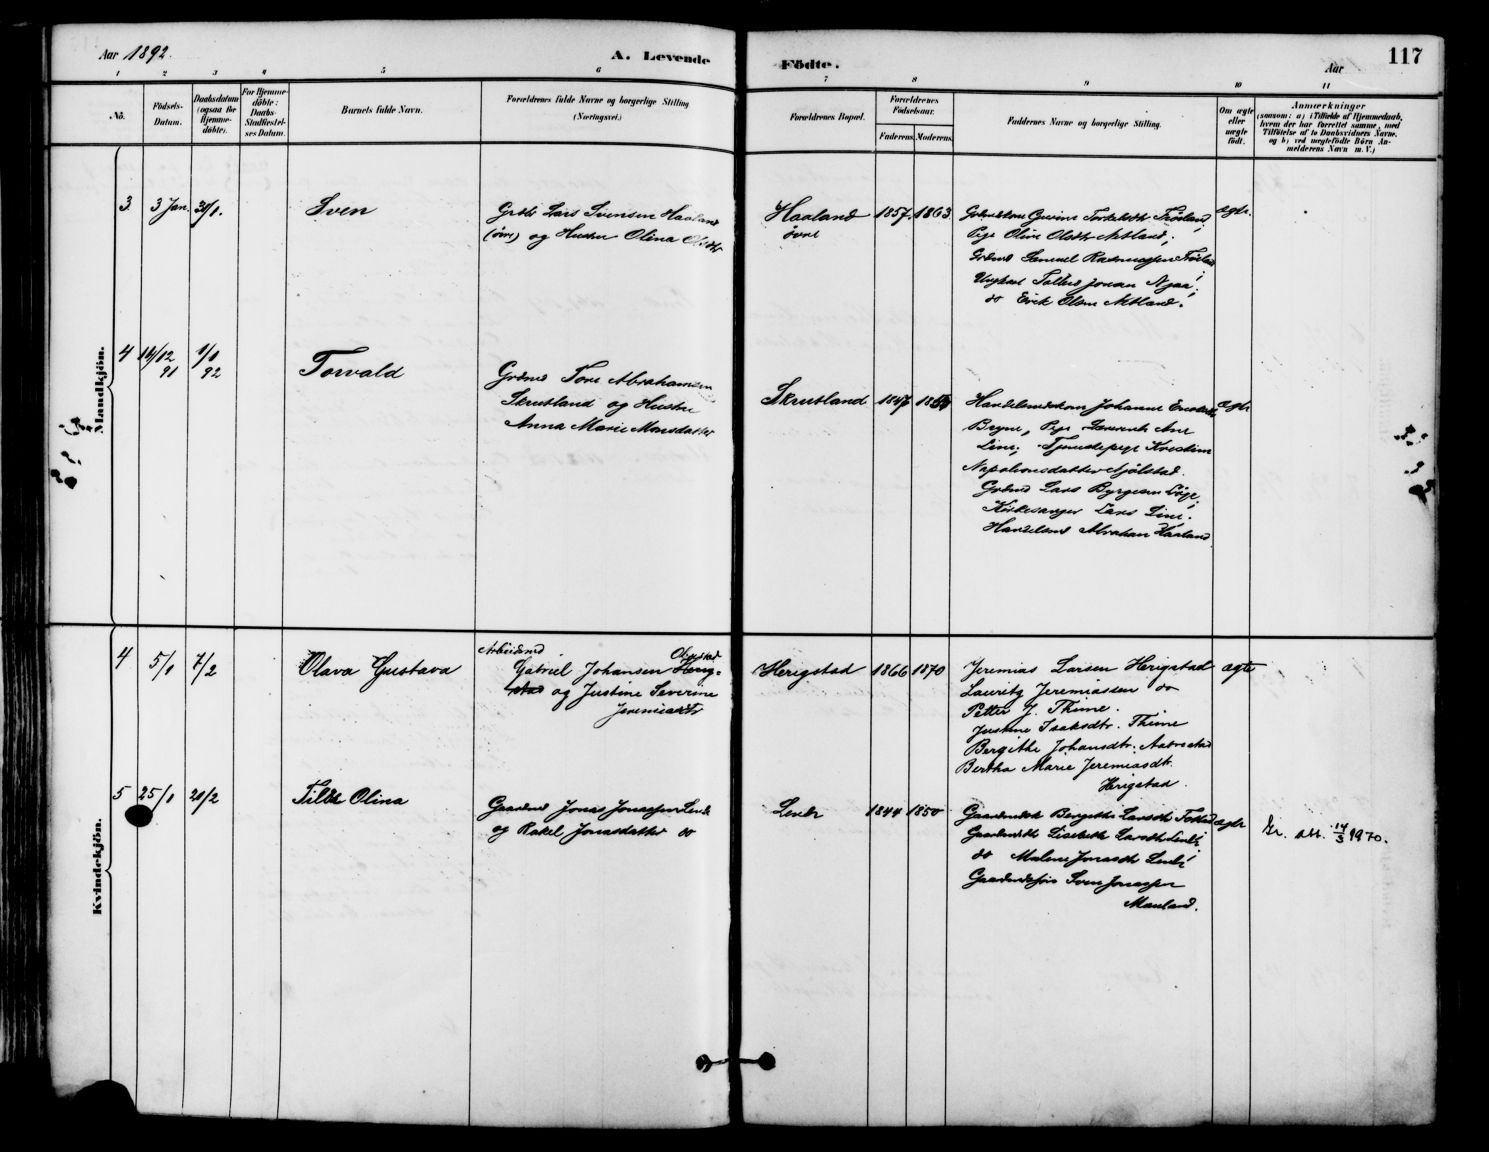 Aar 1892.
A. Levende Födte.
117
Aar
1 2 3 4 5 6 7 8 9 10 11
No.
Födsels-
Datum.
Daabsdatum
(ogsaa for
Hjemme-
döbte).
For Hjemme-
döbte:
Daabs-
Stadfæstel-
ses Datum.
Barnets fulde Navn.
Forældrenes fulde Navne og borgerlige Stilling
(Næringsvei.)
Forældrenes Bopæl.
Forældrenes
Födselsaar.
Faderens. Moderens.
Faddernes Navne og borgerlige Stilling.
Om ægte
eller
uægte
født.
Anmærkninger
(saasom: a) i Tilfælde af Hjemmedaab,
hvem der har forrettet samme, med
Tilföielse af to Daabsvidners Navne.
og b) ved uægtefödte Börn An-
melderens Navn m. V.)
Mandkjön.
3 3 Jan. 31/1.
Sven
Grbr Lars Svensen Haaland
(övre) og Hustru Olina
Haaland
övre
1857. 1863.
Torkelsdtr. Fröiland;
Pige Oline Olsdtr Netland;
Grdmd Samuel Rasmussen
Ungkarl
do Erik Olsen Netland.
ægte.
4 14/12
91
1/1
92
Torvald
Grdmd Tore Abrahamsen
Skrutland og Hustru
Anna Marie Monsdatter
Skrutland
1847
Johanne
Bryne, Pige
Line; Tjenestepige Kristine
Napoleonsdatter Mjölstad.
Grdmd Lars Byrgesen
Kirkesanger Lars Line.
Handelsmd Abraham Haaland
ægte
Kvindekjön.
4 5/1 7/2
Olava Gustava
Arbeidsmd
Gabriel Johansen Herig-
stad og Justine Severine
Jeremiasdtr
Herigstad
1866 1870
Jeremias Larsen Herigstad
Lauritz Jeremiassen do
Petter J. Thime.
Justine Isaksdtr. Thime
Bergithe Johansdtr.
Bertha Marie Jeremiasdt.
Herigstad.
ægte
5 25/1 20/2
Tilde Olina
Gaardmd Jonas Jonassen Lende
og Rakel Jonasdatter do
Lende
1844 1850
Gaardmdsk Bergithe Larsdtr
Gaardmdsk Lisebeth Larsdtr Lende
do Malene Jonasdtr Lende
Gaardmdssön Sven Jonassen
Mauland.
ægte
att. 14/3 1970.